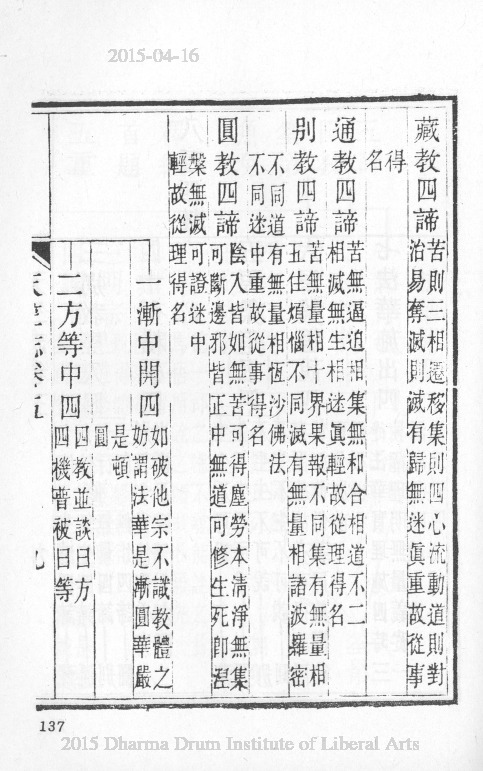 2015-04-16
藏教四諦
苦則三相遷移集則四心流動道則對
治易奪滅則滅有歸無迷眞重故從事
得
名
通教四諦
苦無逼迫相集無和合相道不二
相滅無生相迷眞輕故從理得名
別教四諦
苦無量相十界果報不同集有無量相
五住煩惱不同滅有無量相諸波羅密
不同道有無量相恆沙佛法
不同迷中重故從事得名
圓教四諦
陰入皆如無苦可得塵勞本清淨無集
可斷邊邪皆正中無道可修生死卽湼
槃無滅可證迷中
輕故從理得名
一漸中開四
如被他宗不識教體之
妨謂法華是漸圓華嚴
是頓
圓
二方等中四
四教並談日方
四機普被日等
志卷五
九
137
2015 Dharma Drum Institute of Liberal Arts